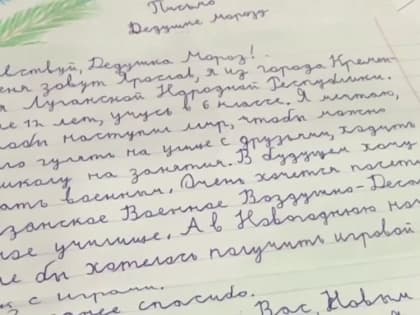 Письмо
Дедушке Морозу
вствуй, Дедушка Мороз!
еня зовут Ярослав, я из города Кремен-
я Луганской Народной Республики.
не 12 лет, учусь в 6 классе. Я мечтаю,
тобы наступил мир, чтобы можно
ло гулять на улице с друзьями, ходить
школу на занятия. В будущем хочу
ать военным. Очень хочется посети
занское Военное Воздушно-Деса
ное училище. А в Новогоднюю но
не бы хотелось получить игровой
с играми.
спасибо.
Вас, Новым